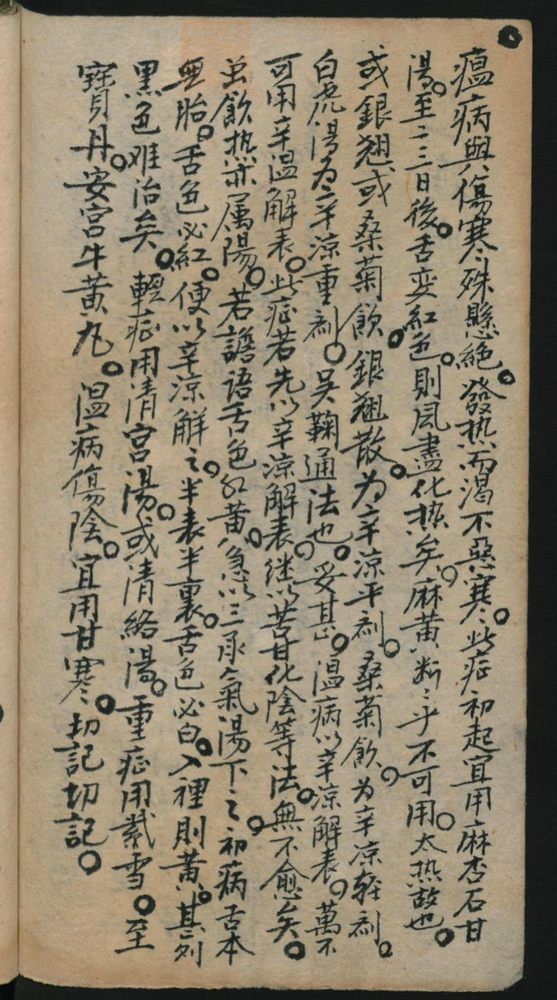 瘟病與傷寒殊懸絕。發热而渴不惡寒。此症初起宜用麻杏石甘
湯。至二三日後。舌变紅色。則風盡化热矣。麻黄断々乎不可用。太热故也。
或銀翘或桑菊飲。銀翘散。为辛凉平剂。桑菊飲。为辛凉輕剂。
白虎湯为辛凉重剂。吴鞠通法也。妥甚。温病以辛凉解表。萬不
可用辛温解表。此症若先以辛凉解表。继以苦甘化陰等法。無不愈矣。
虽飲热亦属陽。若譫語舌色红黄。急以三承氣湯下之。初病舌本
無胎。舌色必紅。便以辛凉解之。半表半裏。舌色必白。入裡則黄。甚則
黑色难治矣。輕症用清宫湯。或清絡湯。重症用紫雪。至
寶丹。安宫牛黄丸。温病傷陰。宜用甘寒。切記切記。